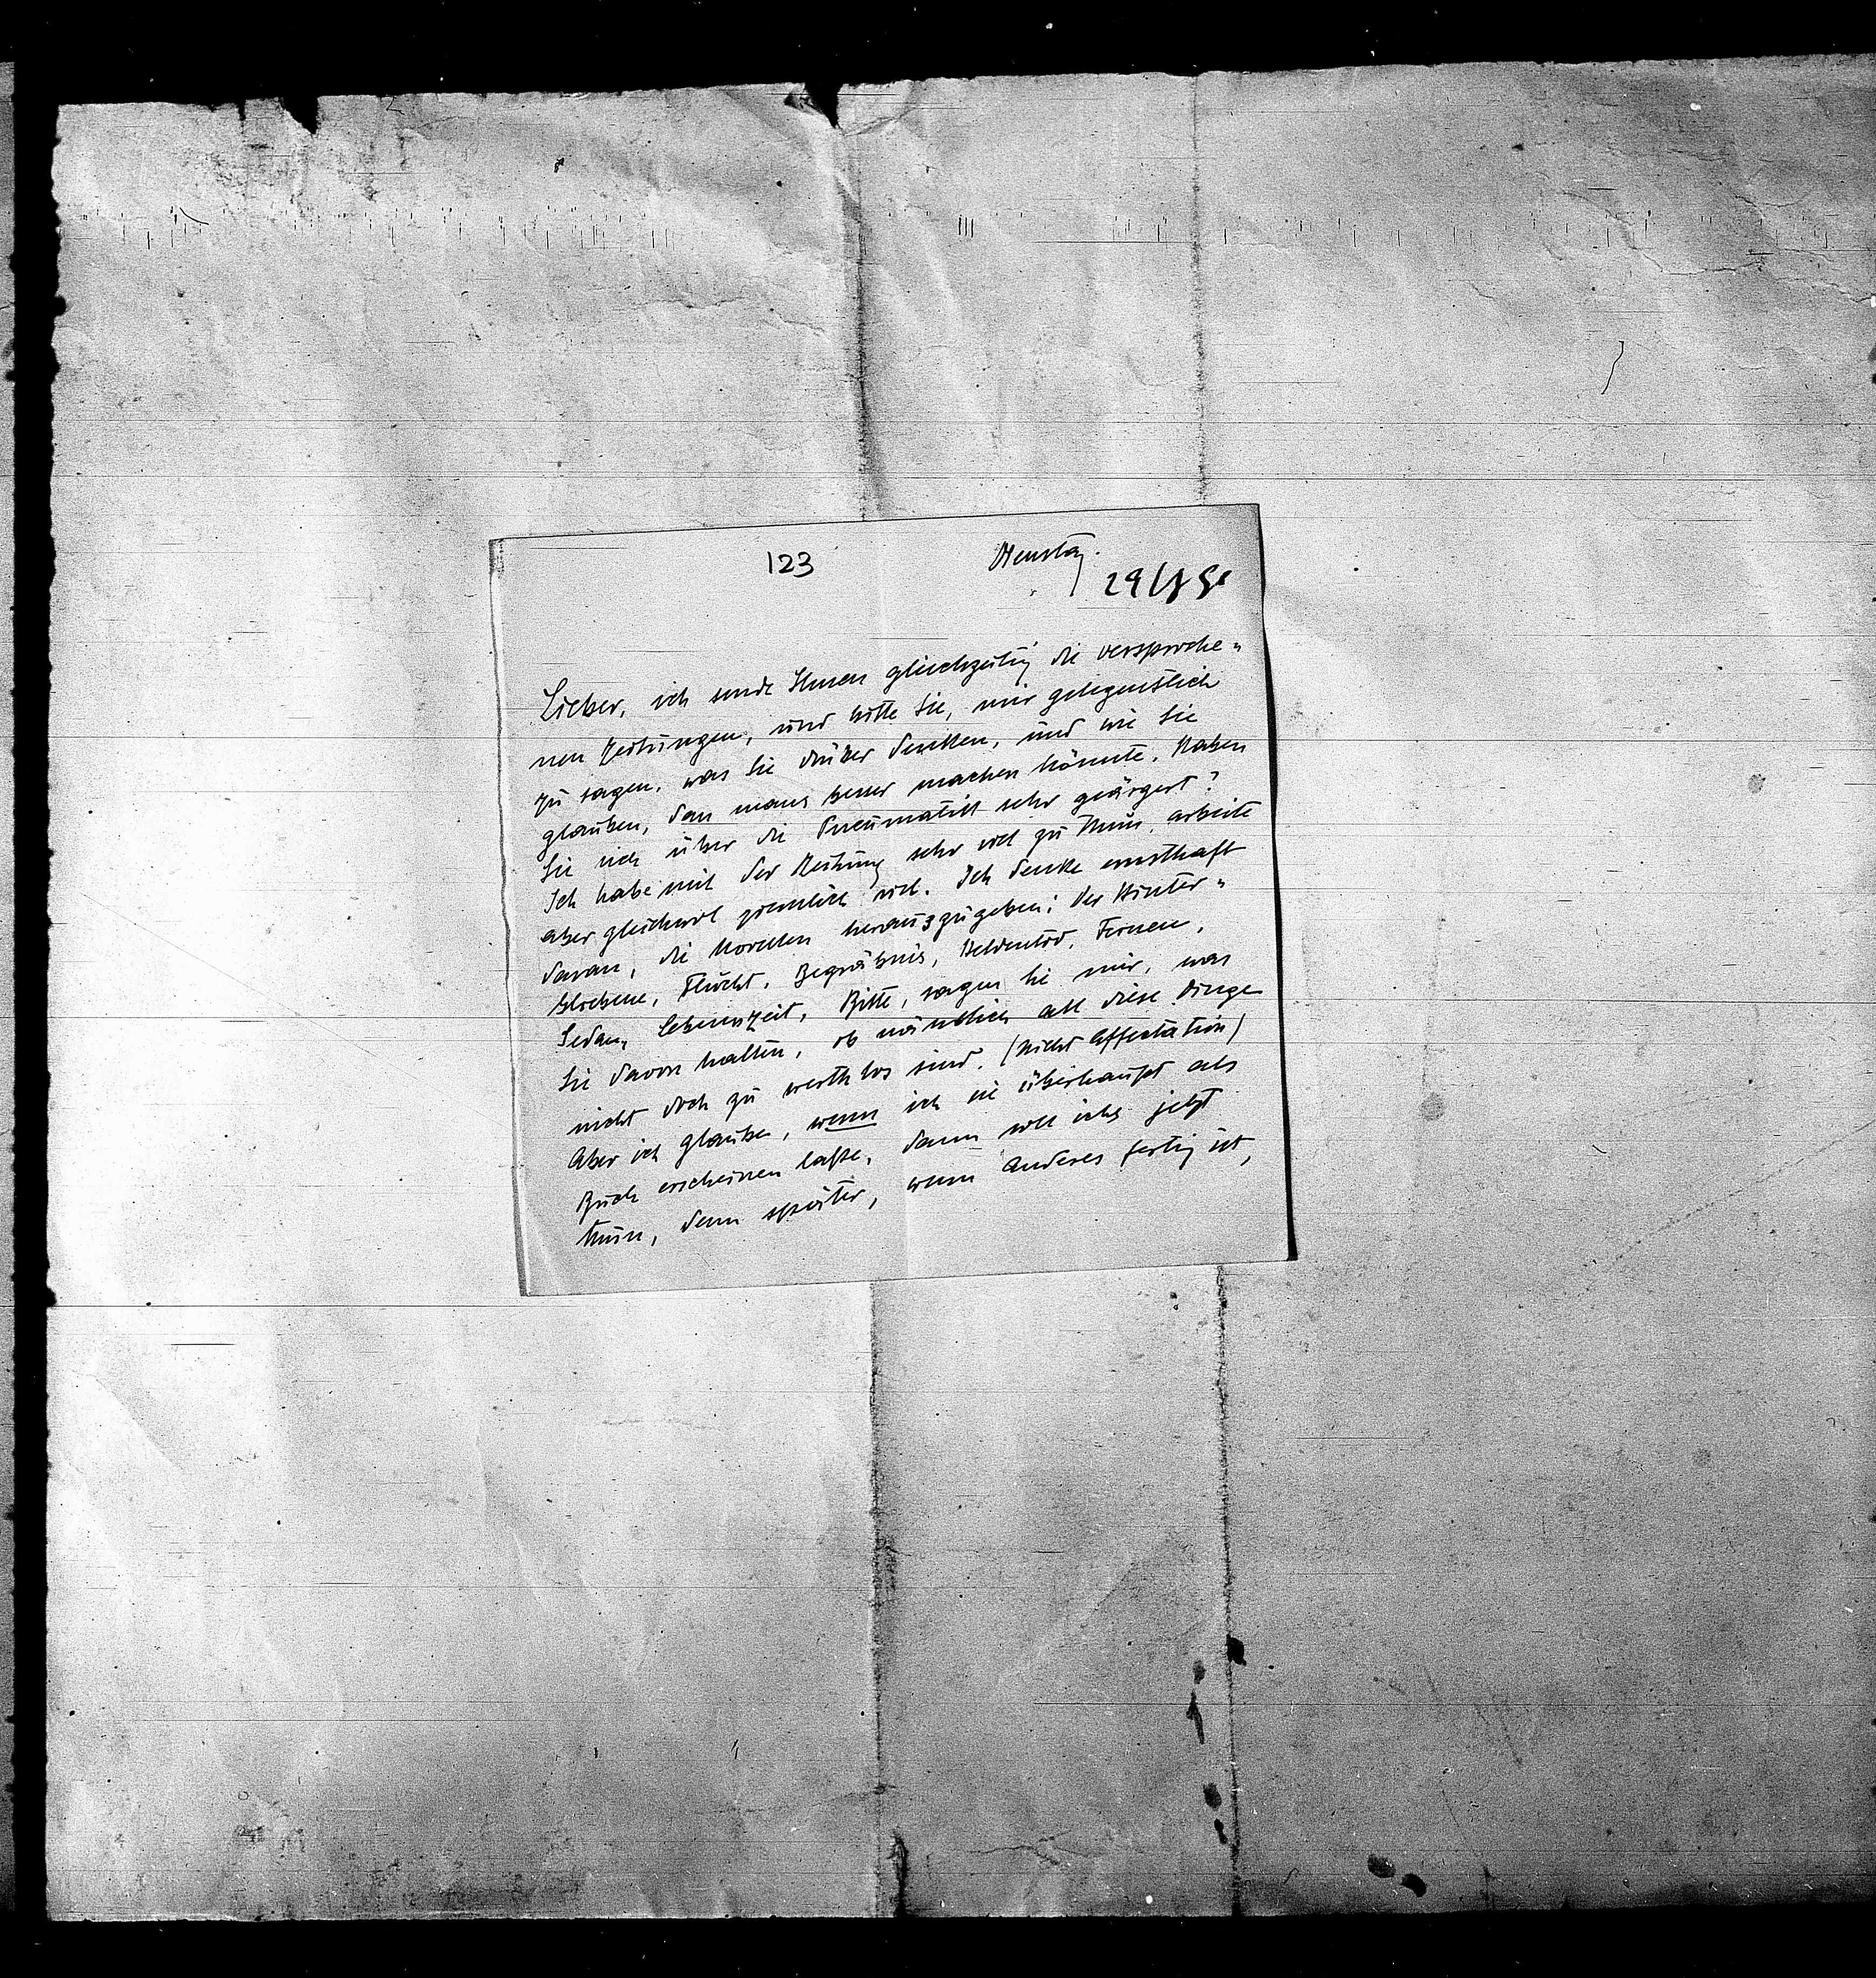 123
Dienstag.
29/
Lieber, ich sende Ihnen gleichzeitig die versproche=
nen Zeitungen, und bitte Sie, mir gelegentlich
zu sagen, was Sie drüber denken, und wie Sie
glauben, dass mans besser machen könnte. Haben
Sie sich über die Pneumatik sehr geärgert?
Ich habe mit der Zeitung sehr viel zu thun, arbeite
aber gleichwol ziemlich viel. Ich denke ernsthaft
daran, die Novellen herauszugeben: Der Hinter=
bliebene, Flucht, Begräbnis, Heldentod, Fernen,
Sedan, Lebenszeit. Bitte, sagen Sie mir, was
Sie davon halten, ob nämlich all diese Dinge
nicht doch zu werthlos sind. (Nicht Affectation)
Aber ich glaube, wenn ich sie überhaupt als
Buch erscheinen lasse, dann soll ichs jetzt
thun, denn später, wenn Anderes fertig ist,